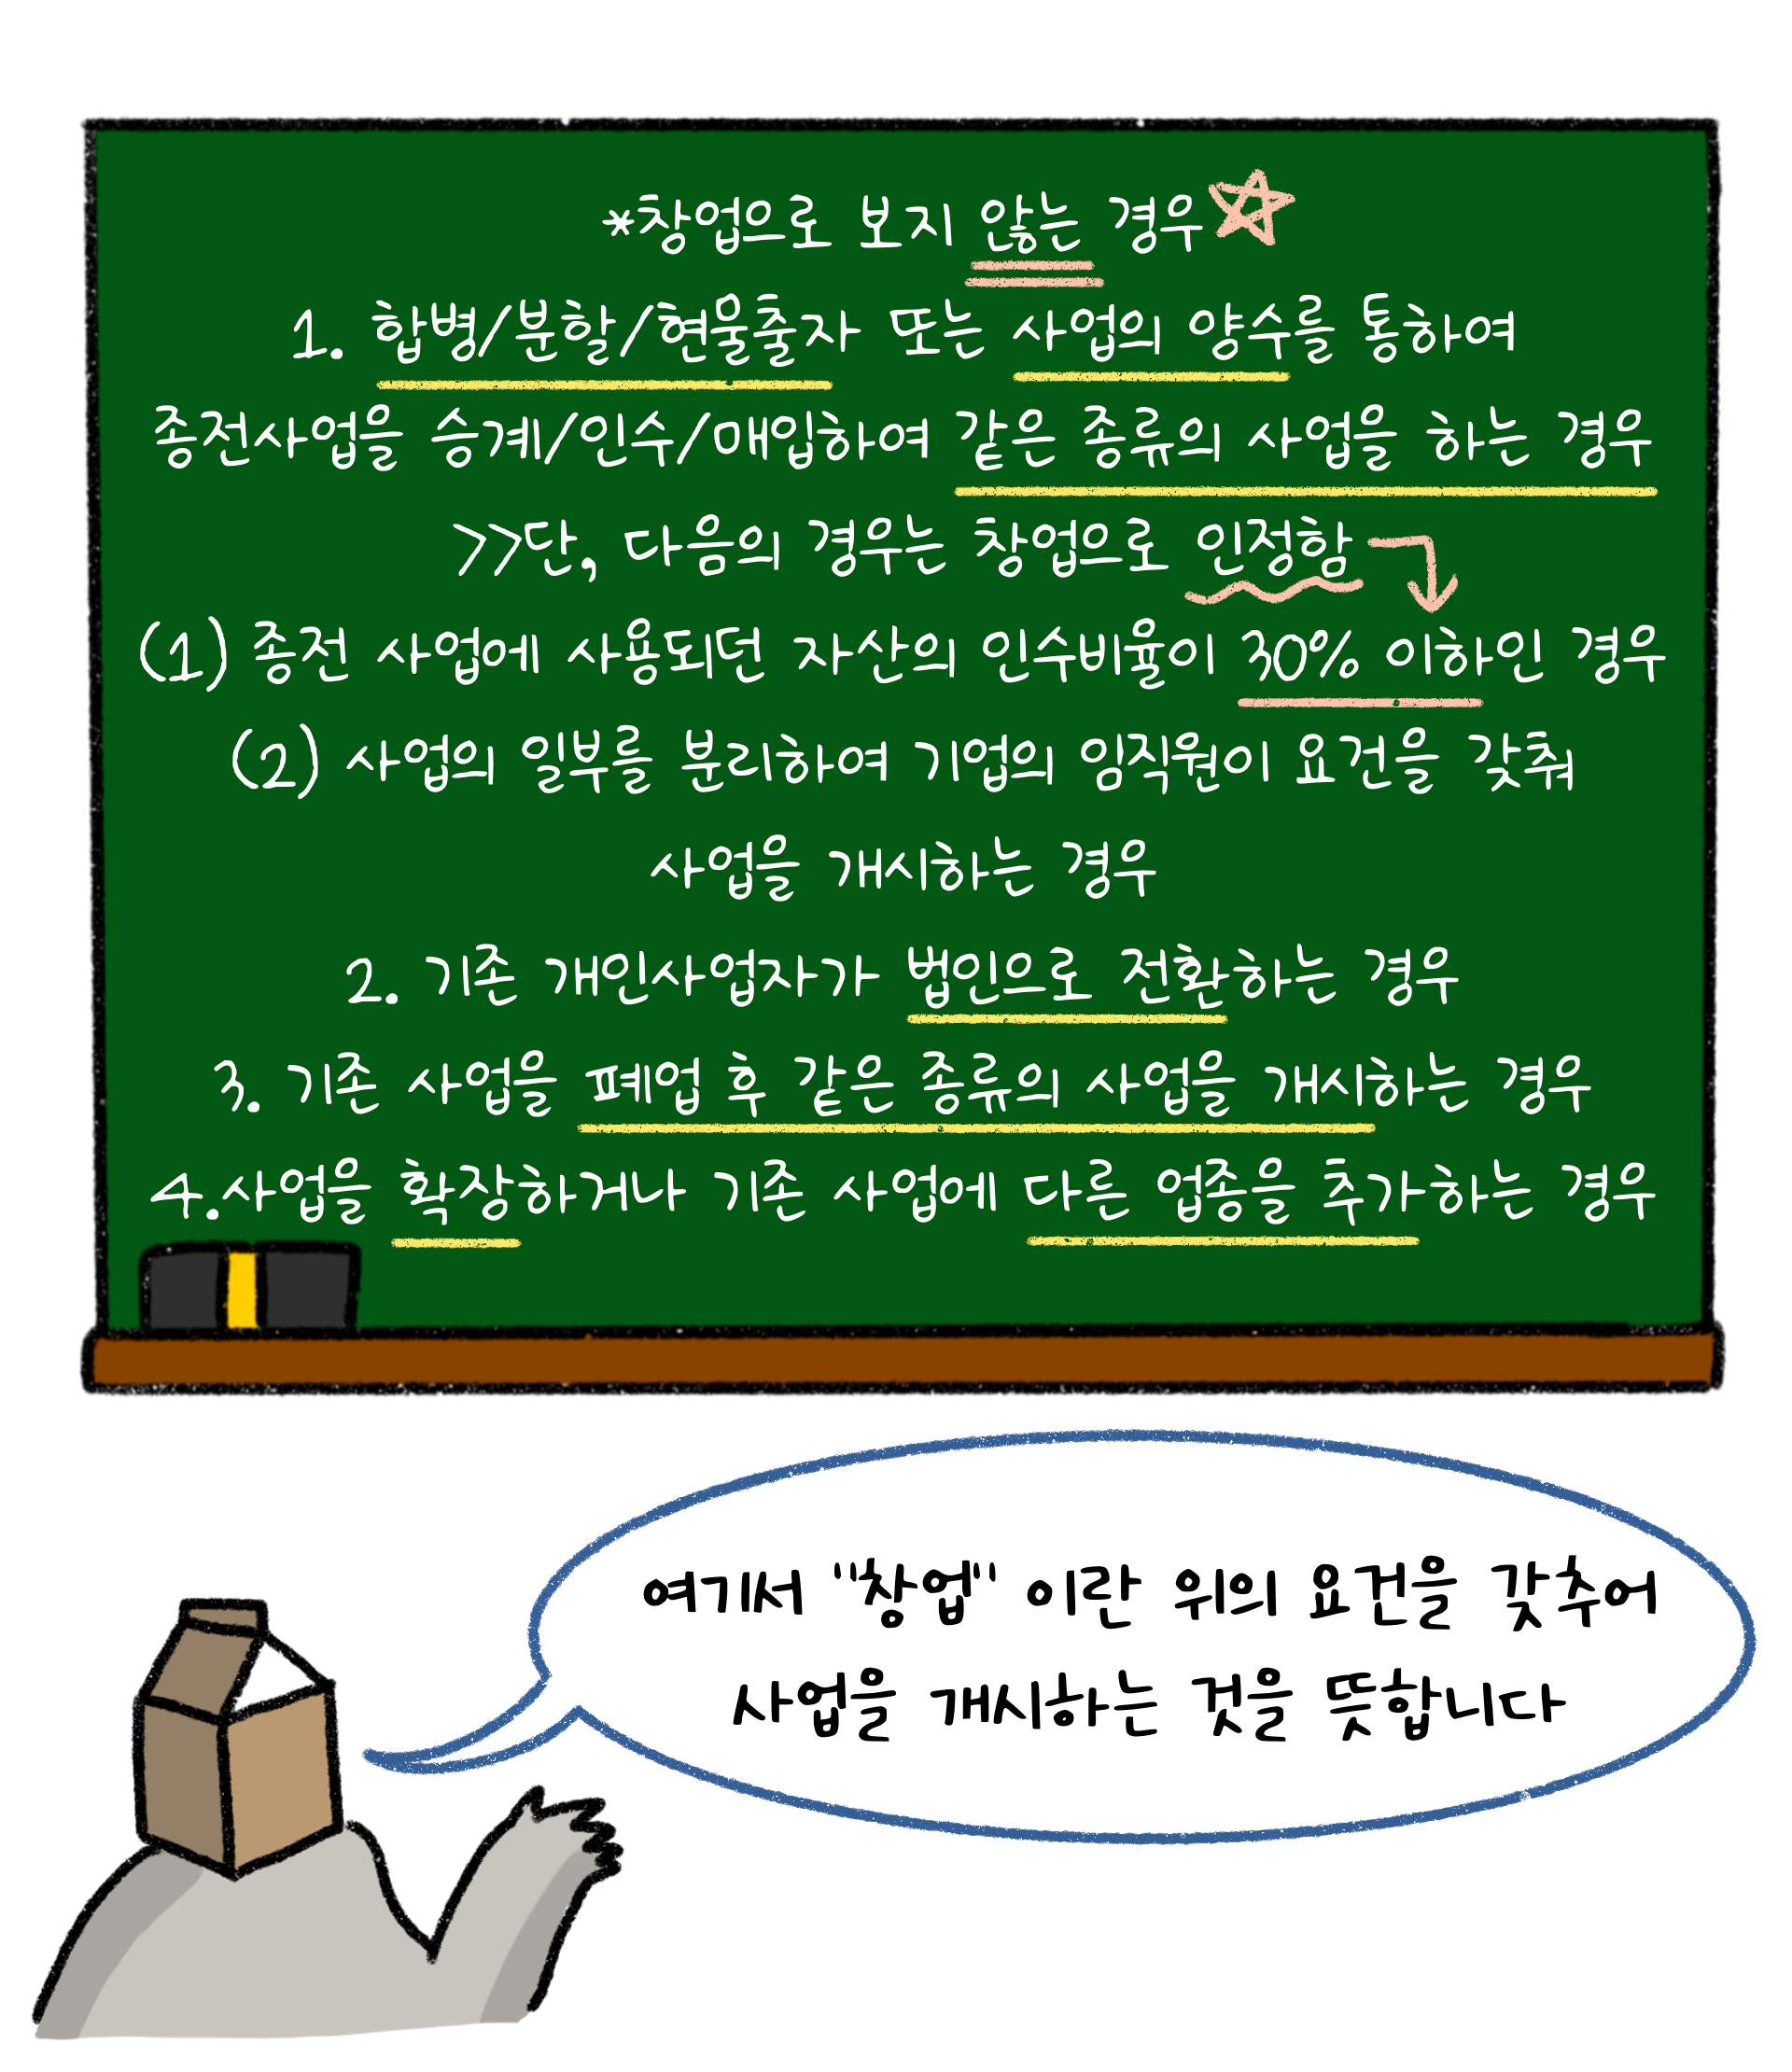 *창업으로 보지 않는 경우
1. 합병/분할/현물출자 또는 사업의 양수를 통하여
종전사업을 승계/인수/매입하여 같은 종류의 사업을 하는 경우
>>단, 다음의 경우는 창업으로 인정함
(1) 종전 사업에 사용되던 자산의 인수비율이 30% 이하인 경우
(2) 사업의 일부를 분리하여 기업의 임직원이 요건을 갖춰
사업을 개시하는 경우
2. 기존 개인사업자가 법인으로 전환하는 경우
3. 기존 사업을 폐업 후 같은 종류의 사업을 개시하는 경우
4.사업을 확장하거나 기존 사업에 다른 업종을 추가하는 경우
여기서 "창업" 이란 위의 요건을 갖추어
사업을 개시하는 것을 뜻합니다